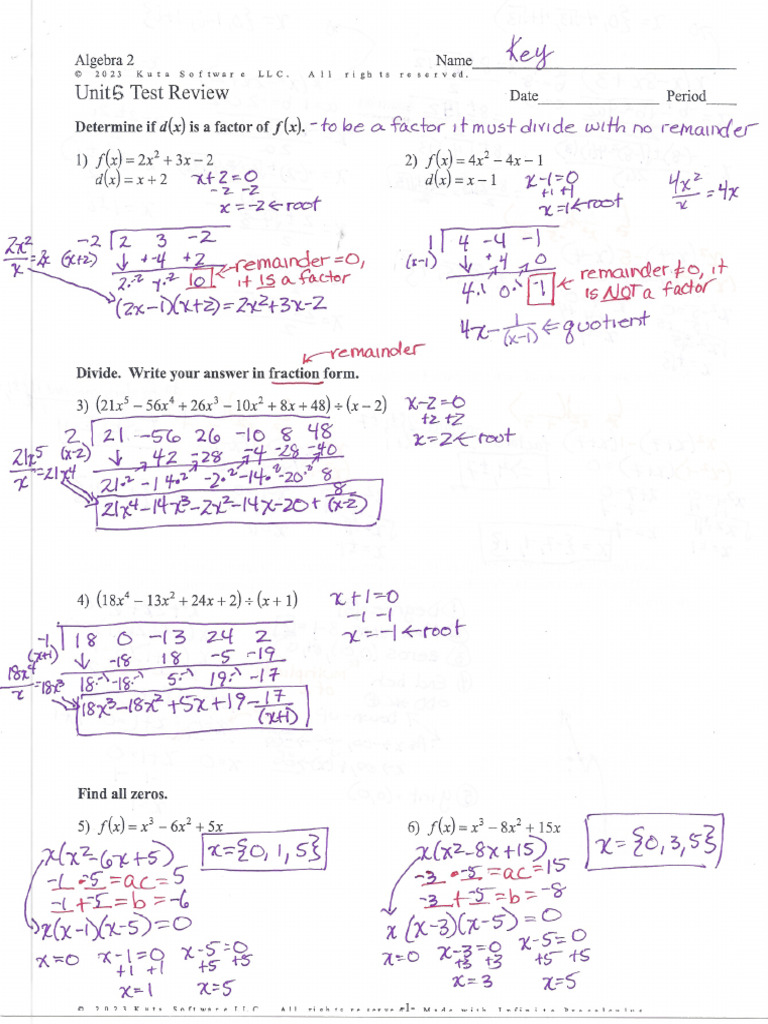 Algebra 2
Name Key
© 2023 Kuta Software LLC. All rights reserved.
Unit 6 Test Review
Date Period
Determine if d(x) is a factor of f(x). - to be a factor it must divide with no remainder
1) f(x) = 2x² + 3x − 2
d(x) = x + 2
x+2=0
-2 -2
x=-2 ← root
-2 | 2 3 -2
2x²/x = 2x (x+2) ↓ + -4 +2
2·-2 -1·-2 |0| ← remainder =0, it IS a factor
(2x-1)(x+2)=2x²+3x-2
2) f(x) = 4x² − 4x − 1
d(x) = x − 1
x-1=0
+1 +1
x=1 ← root
4x²/x = 4x
1 | 4 -4 -1
(x-1) ↓ +4 0
4·1 0·1 |-1| ← remainder ≠0, it is NOT a factor
4x - 1/(x-1) ← quotient
remainder
Divide. Write your answer in fraction form.
3) (21x⁵ − 56x⁴ + 26x³ − 10x² + 8x + 48) ÷ (x − 2)
x-2=0
+2 +2
x=2 ← root
2 | 21 -56 26 -10 8 48
21x⁵/x = 21x⁴ (x-2) ↓ 42 -28 -4 -28 -40
21·2 -14·2 -2·2 -14·2 -20·2 8
21x⁴-14x³-2x²-14x-20+8/(x-2)
4) (18x⁴ − 13x² + 24x + 2) ÷ (x + 1)
x+1=0
-1 -1
x=-1 ← root
-1 | 18 0 -13 24 2
(x+1) ↓ -18 18 -5 -19
18x⁴/x = 18x³ 18·-1 -18·-1 5·-1 19·-1 -17
18x³-18x²+5x+19-17/(x+1)
Find all zeros.
5) f(x) = x³ − 6x² + 5x
x(x²-6x+5)
x={0,1,5}
-1 · -5 = ac = 5
-1 + -5 = b = -6
x(x-1)(x-5)=0
x=0 x-1=0 x-5=0
+1 +1 +5 +5
x=1 x=5
6) f(x) = x³ − 8x² + 15x
x(x²-8x+15)
x={0,3,5}
-3 · -5 = ac = 15
-3 + -5 = b = -8
x(x-3)(x-5)=0
x=0 x-3=0 x-5=0
+3 +3 +5 +5
x=3 x=5
© 2023 Kuta Software LLC. All rights reserve -1- Made with Infinite Precalculus